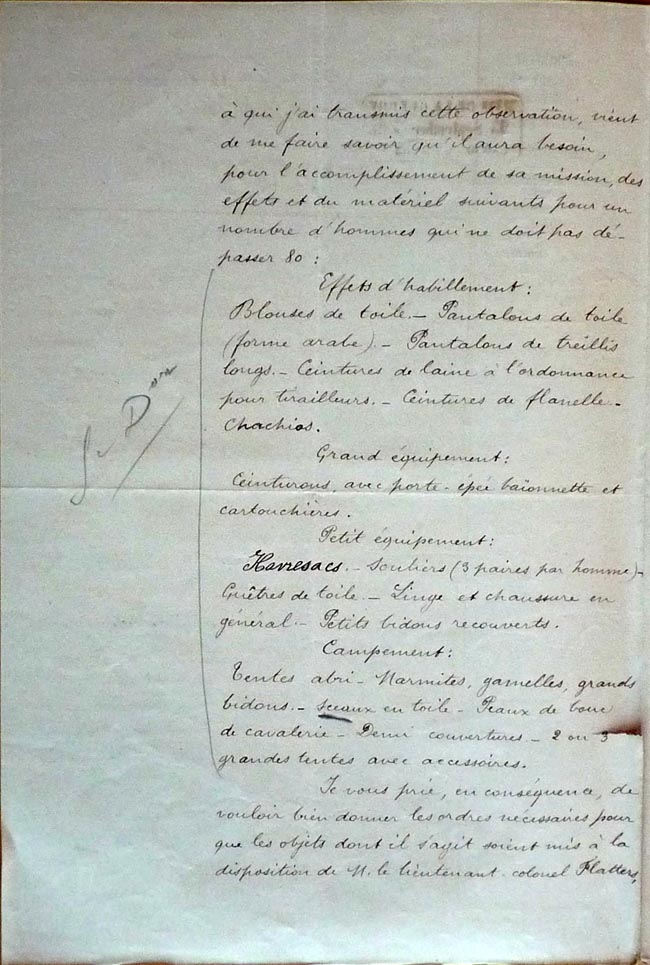 à qui j'ai transmis cette observation, vient
de me faire savoir qu'il aura besoin,
pour l'accomplissement de sa mission, des
effets et du matériel suivants pour un
nombre d'hommes qui ne doit pas dé-
passer 80 :
Effets d'habillement :
Blouses de toile. – Pantalons de toile
(forme arabe). – Pantalons de treillis
longs. – Ceintures de laine à l'ordonnance
pour tirailleurs. – Ceintures de flanelle. –
Chachios.
Grand équipement :
Ceinturons, avec porte-épée baïonnette et
cartouchières.
Petit équipement :
Havresacs. – Souliers (3 paires par homme) –
Guêtres de toile. – Linge et chaussure en
général. – Petits bidons recouverts.
Campement :
Tentes abri – Marmites, gamelles, grands
bidons. – Sceaux en toile – Peaux de bouc
de cavalerie – Demi couvertures. – 2 ou 3
grandes tentes avec accessoires.
Je vous prie, en conséquence, de
vouloir bien donner les ordres nécessaires pour
que les objets dont il s'agit soient mis à la
disposition de M. le lieutenant-colonel Flatters,